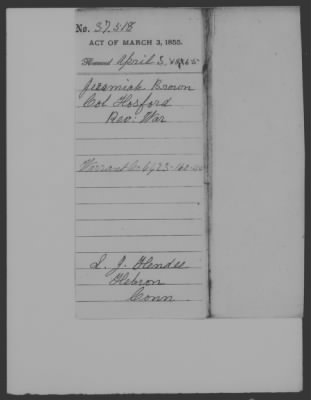 No. 37518
ACT OF MARCH 3, 1855.
April 3
Jeremiah Brown
Col Hosford
Rev. War
Warrant No 6923-160-
L. J. Hendee
Hebron
Conn